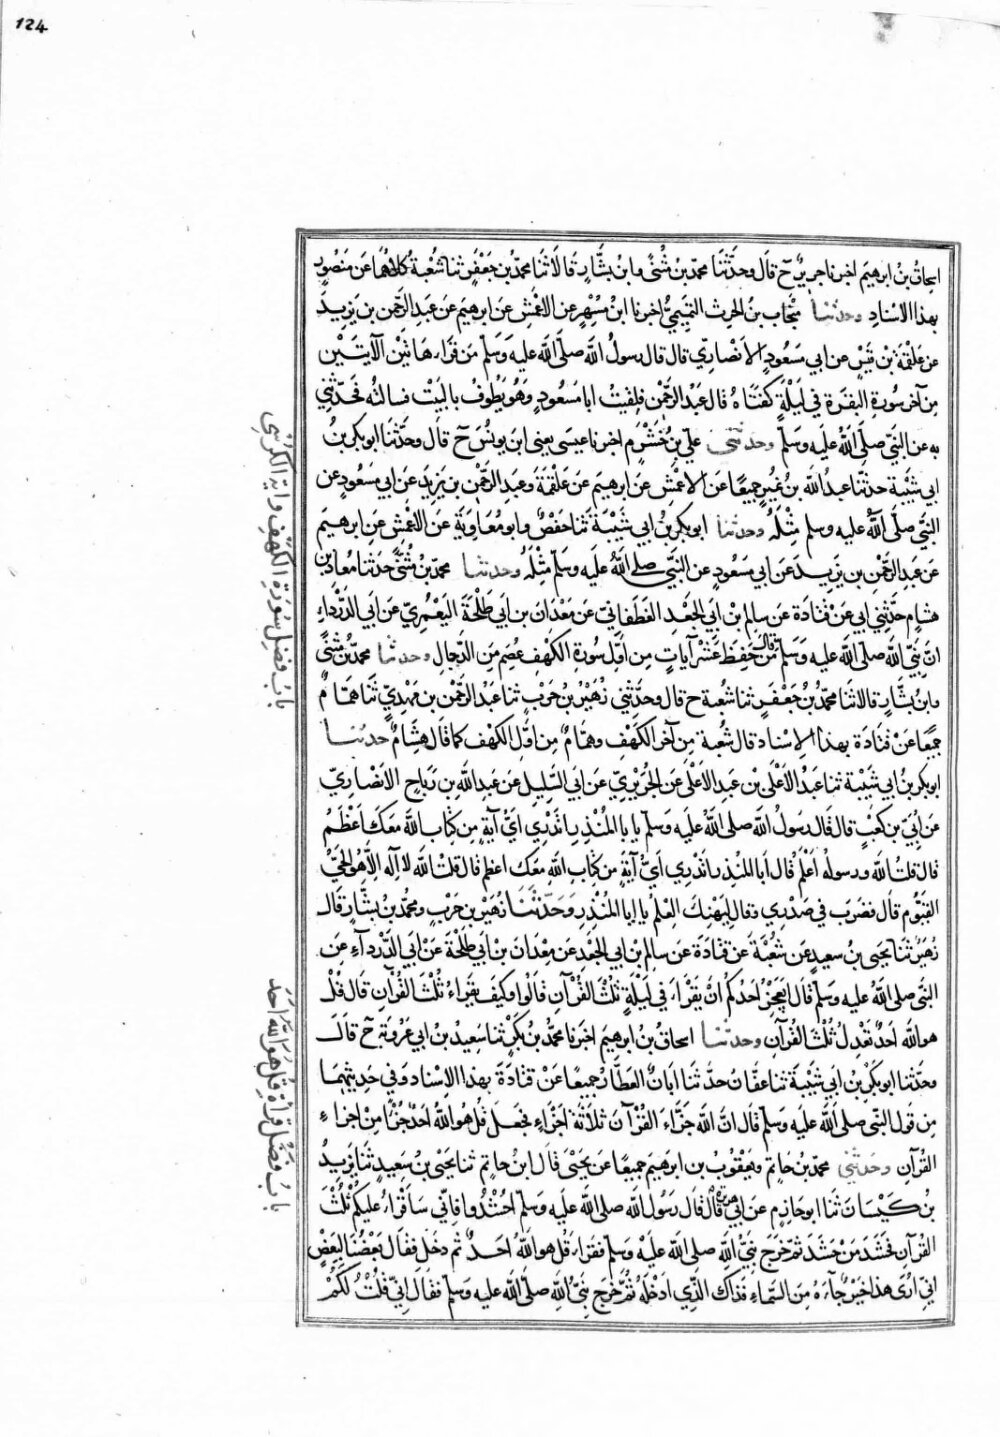 124
اسحاق بن ابرهيم اخبرنا جرير ح قال وحدثنا محمد بن مثنى وابن بشار قالا ثنا محمد بن جعفر ثنا شعبة كلاهما عن منصور
بهذا الاسناد وحدثنا منجاب بن الحرث التميمي اخبرنا ابن مسهر عن الاعمش عن ابرهيم عن عبد الرحمن بن يزيد
عن علقمة بن قيس عن ابي مسعود الانصاري قال قال رسول الله صلى الله عليه وسلم من قراء هاتين الآيتين
من آخر سورة البقرة في ليلة كفتاه قال عبد الرحمن فلقيت ابا مسعود وهو يطوف بالبيت فسالته فحدثني
به عن النبي صلى الله عليه وسلم وحدثني علي بن خشرم اخبرنا عيسى يعني ابن يونس ح قال وحدثنا ابو بكر بن
ابي شيبة حدثنا عبد الله بن نمير جميعا عن الاعمش عن ابرهيم عن علقمة وعبد الرحمن بن يزيد عن ابي مسعود عن
النبي صلى الله عليه وسلم مثله وحدثنا ابو بكر بن ابي شيبة ثنا حفص وابو معاوية عن الاعمش عن ابرهيم
عن عبد الرحمن بن يزيد عن ابي مسعود عن النبي صلى الله عليه وسلم مثله وحدثنا محمد بن مثنى حدثنا معاذ بن
هشام حدثني ابي عن قتادة عن سالم بن ابي الجعد الغطفاني عن معدان بن ابي طلحة اليعمري عن ابي الدرداء
ان نبي الله صلى الله عليه وسلم قال من حفظ عشر آيات من اول سورة الكهف عصم من الدجال وحدثنا محمد بن مثنى
وابن بشار قالا ثنا محمد بن جعفر ثنا شعبة ح قال وحدثني زهير بن حرب ثنا عبد الرحمن بن مهدي ثنا همام
جميعا عن قتادة بهذا الاسناد قال شعبة من آخر الكهف وهمام من اول الكهف كما قال هشام حدثنا
ابو بكر بن ابي شيبة ثنا عبد الاعلى بن عبد الاعلى عن الجريري عن ابي السليل عن عبد الله بن رباح الانصاري
عن ابي بن كعب قال قال رسول الله صلى الله عليه وسلم يا با المنذر اتدري اي آية من كتاب الله معك اعظم
قال قلت الله ورسوله اعلم قال ابا المنذر اتدري اي آية من كتاب الله معك اعظم قال قلت الله لا اله الا هو الحي
القيوم قال فضرب في صدري وقال ليهنك العلم يا ابا المنذر وحدثنا زهير بن حرب ومحمد بن بشار قال
زهير ثنا يحيى بن سعيد عن شعبة عن قتادة عن سالم بن ابي الجعد عن معدان بن ابي طلحة عن ابي الدرداء عن
النبي صلى الله عليه وسلم قال ايعجز احدكم ان يقراء في ليلة ثلث القرآن قالوا وكيف يقراء ثلث القرآن قال قل
هو الله احد تعدل ثلث القرآن وحدثنا اسحاق بن ابرهيم اخبرنا محمد بن بكر ثنا سعيد بن ابي عروبة ح قال
وحدثنا ابو بكر بن ابي شيبة ثنا عفان حدثنا ابان العطار جميعا عن قتادة بهذا الاسناد وفي حديثهما
من قول النبي صلى الله عليه وسلم قال ان الله جزاء القرآن ثلاثة اجزاء فجعل قل هو الله احد جزءا من اجزاء
القرآن وحدثني محمد بن حاتم ويعقوب بن ابرهيم جميعا عن يحيى قال ابن حاتم ثنا يحيى بن سعيد ثنا يزيد
بن كيسان ثنا ابو حازم عن ابي هريرة قال قال رسول الله صلى الله عليه وسلم احشدوا فاني ساقراء عليكم ثلث
القرآن فحشد من حشد ثم خرج نبي الله صلى الله عليه وسلم فقراء قل هو الله احد ثم دخل فقال بعضنا لبعض
اني ارى هذا خبر جآءه من السماء فذاك الذي ادخله ثم خرج نبي الله صلى الله عليه وسلم فقال اني قلت لكم
باب فضل سورة الكهف واية الكرسي
باب فضل قراة قل هو الله احد